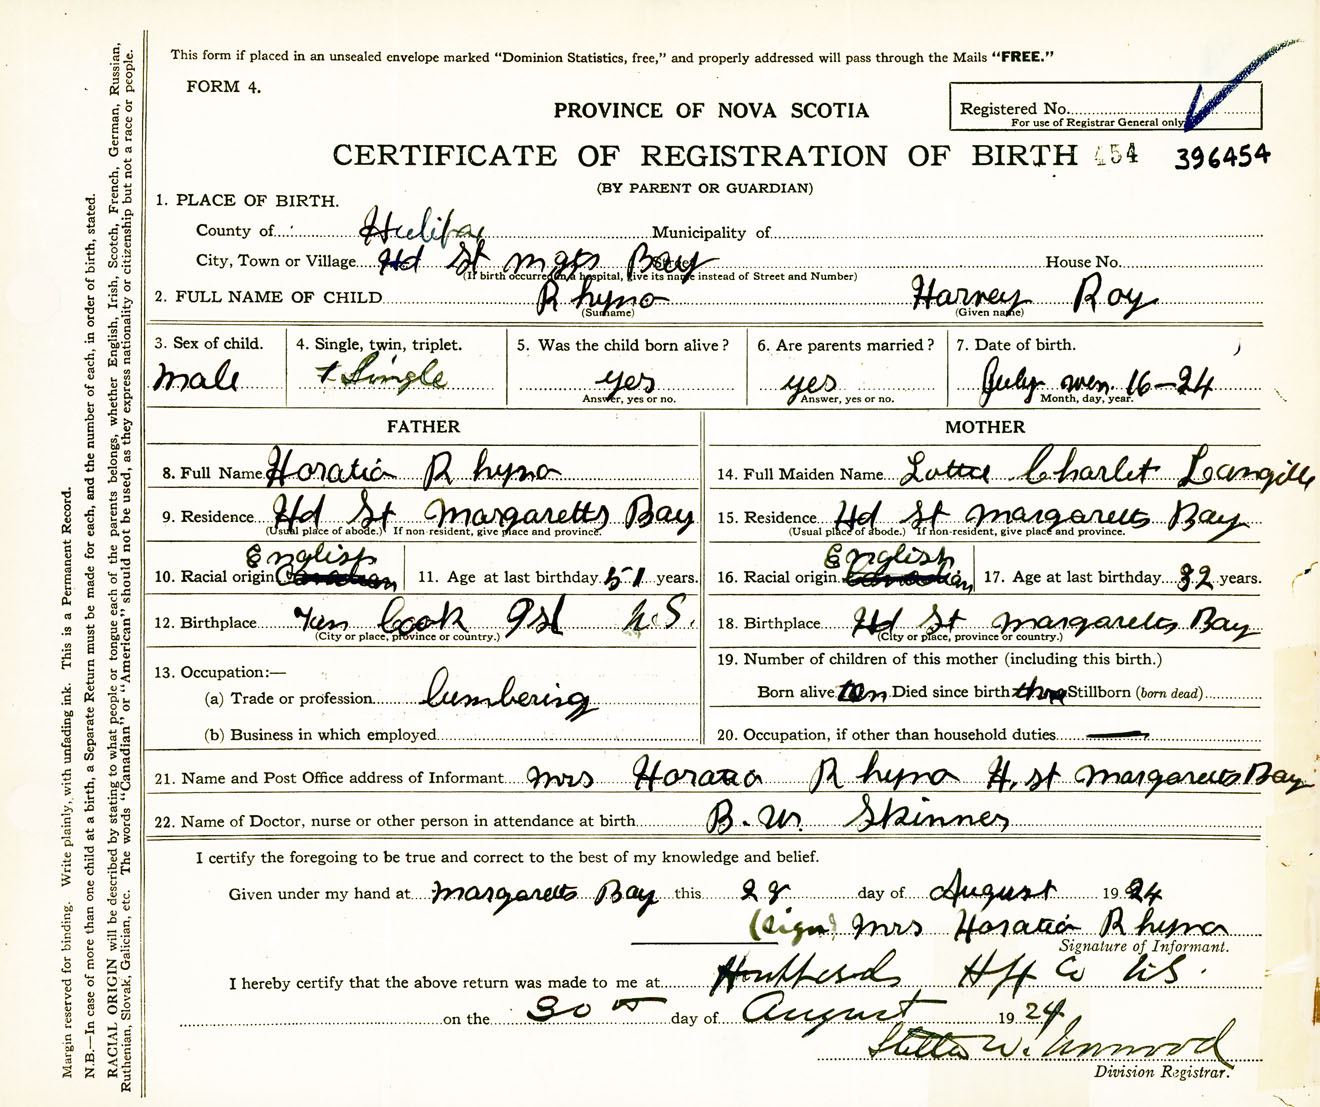 This form if placed in an unsealed envelope marked "Dominion Statistics, free," and properly addressed will pass through the Mails "FREE."
FORM 4.
Registered No.
For use of Registrar General only
PROVINCE OF NOVA SCOTIA
CERTIFICATE OF REGISTRATION OF BIRTH 454 396454
(BY PARENT OR GUARDIAN)
1. PLACE OF BIRTH.
County of Halifax Municipality of
City, Town or Village Hd St Mgts Bay Street House No.
(If birth occurred in a hospital, give its name instead of Street and Number)
2. FULL NAME OF CHILD Rhyno Harvey Roy
(Surname) (Given name)
3. Sex of child. 4. Single, twin, triplet. 5. Was the child born alive? 6. Are parents married? 7. Date of birth.
Male Single yes yes July 16-24
Answer, yes or no. Answer, yes or no. Month, day, year.
FATHER MOTHER
8. Full Name Horatio Rhyno 14. Full Maiden Name Lottie Charlet Langille
9. Residence Hd St Margaretts Bay 15. Residence Hd St Margaretts Bay
(Usual place of abode.) If non-resident, give place and province. (Usual place of abode.) If non-resident, give place and province.
English English
10. Racial origin Canadian 11. Age at last birthday 51 years. 16. Racial origin Canadian 17. Age at last birthday 32 years.
12. Birthplace Cook N.S. 18. Birthplace Hd St Margaretts Bay
(City or place, province or country.) (City or place, province or country.)
13. Occupation:— 19. Number of children of this mother (including this birth.)
(a) Trade or profession lumbering Born alive ten Died since birth three Stillborn (born dead)
(b) Business in which employed 20. Occupation, if other than household duties —
21. Name and Post Office address of Informant Mrs Horatio Rhyno H, St Margaretts Bay
22. Name of Doctor, nurse or other person in attendance at birth B. W. Skinner
I certify the foregoing to be true and correct to the best of my knowledge and belief.
Given under my hand at Margaretts Bay this 28 day of August 1924
(sign) Mrs Horatio Rhyno
Signature of Informant.
I hereby certify that the above return was made to me at Hfx Co NS.
on the 30 day of August 1924
W.
Division Registrar.
Margin reserved for binding. Write plainly, with unfading ink. This is a Permanent Record.
N.B.—In case of more than one child at a birth, a Separate Return must be made for each, and the number of each, in order of birth, stated.
RACIAL ORIGIN will be described by stating to what people or tongue each of the parents belongs, whether English, Irish, Scotch, French, German, Russian,
Ruthenian, Slovak, Galician, etc. The words "Canadian" or "American" should not be used, as they express nationality or citizenship but not a race or people.